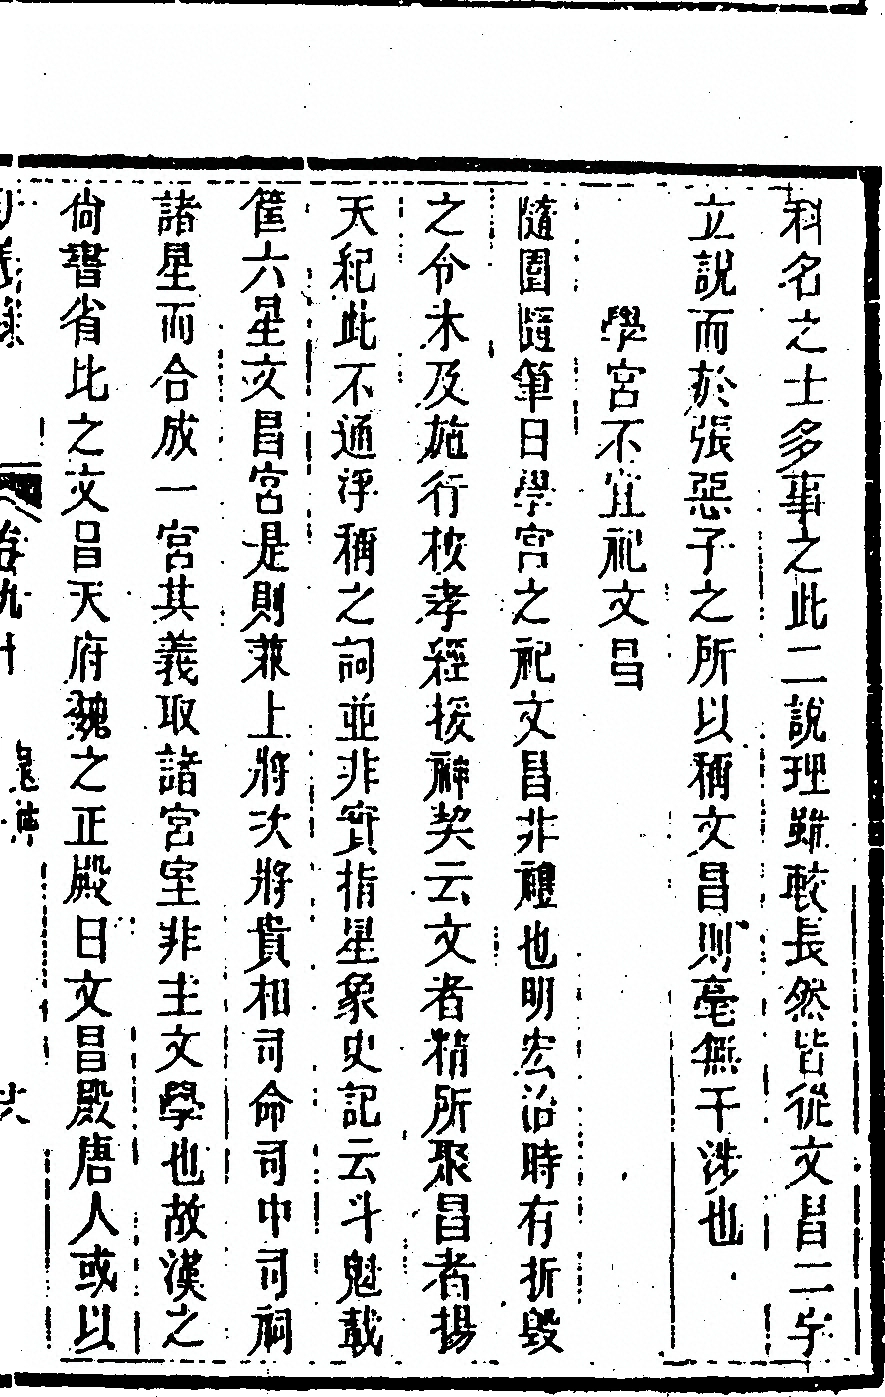 科名之士多事之此二說理雖較長然皆從文昌二字
立說而於張惡子之所以稱文昌則毫無干涉也
學宮不宜祀文昌
隨園隨筆曰學宮之祀文昌非禮也明宏治時有折毀
之令未及施行按孝經援神契云文者精所聚昌者揚
天紀此不通浮稱之詞並非實指星象史記云斗魁戴
筐六星文昌宮是則兼上將次將貴相司命司中司祠
諸星而合成一宮其義取諸宮室非主文學也故漢之
尚書省比之文昌天府魏之正殿曰文昌殿唐人或以
卷九十
鬼神